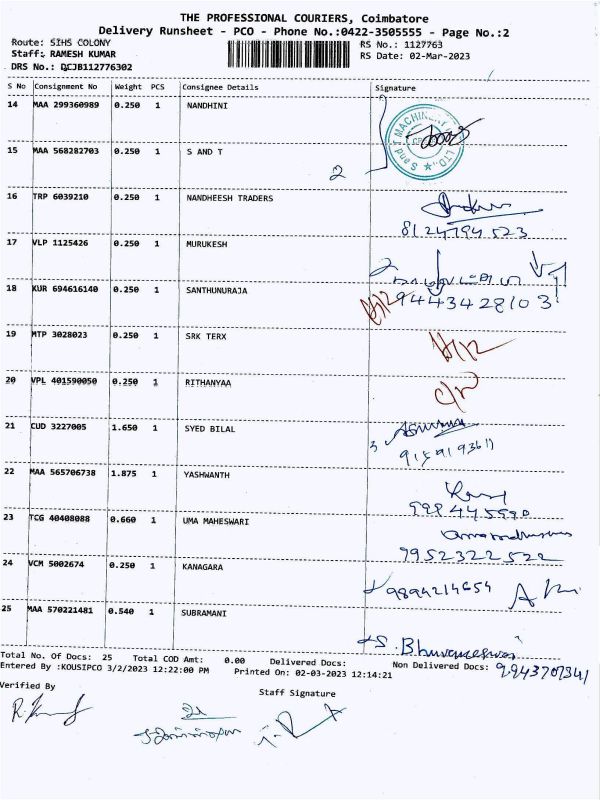 THE PROFESSIONAL COURIERS, Coimbatore
Delivery Runsheet - PCO - Phone No.:0422-3505555 - Page No.:2
Route: SIHS COLONY
RS No.: 1127763
Staff: RAMESH KUMAR
RS Date: 02-Mar-2023
DRS No.: QCJB112776302
S No Consignment No Weight PCS Consignee Details Signature
14 MAA 299360989 0.250 1 NANDHINI
15 MAA 568282703 0.250 1 S AND T
2
S and T MACHINERY LTD.,
16 TRP 6039210 0.250 1 NANDHEESH TRADERS
8124794523
17 VLP 1125426 0.250 1 MURUKESH
2
18 KUR 694616140 0.250 1 SANTHUNURAJA
9443428103
19 MTP 3028023 0.250 1 SRK TERX
20 VPL 401590050 0.250 1 RITHANYAA
21 CUD 3227005 1.650 1 SYED BILAL
3
22 MAA 565706738 1.875 1 YASHWANTH
23 TCG 40408088 0.660 1 UMA MAHESWARI
9952322522
24 VCM 5002674 0.250 1 KANAGARA
9894214654
25 MAA 570221481 0.540 1 SUBRAMANI
S. Bhuvaneswari
Total No. Of Docs: 25 Total COD Amt: 0.00 Delivered Docs: Non Delivered Docs:
Entered By :KOUSIPCO 3/2/2023 12:22:00 PM Printed On: 02-03-2023 12:14:21
Verified By
Staff Signature